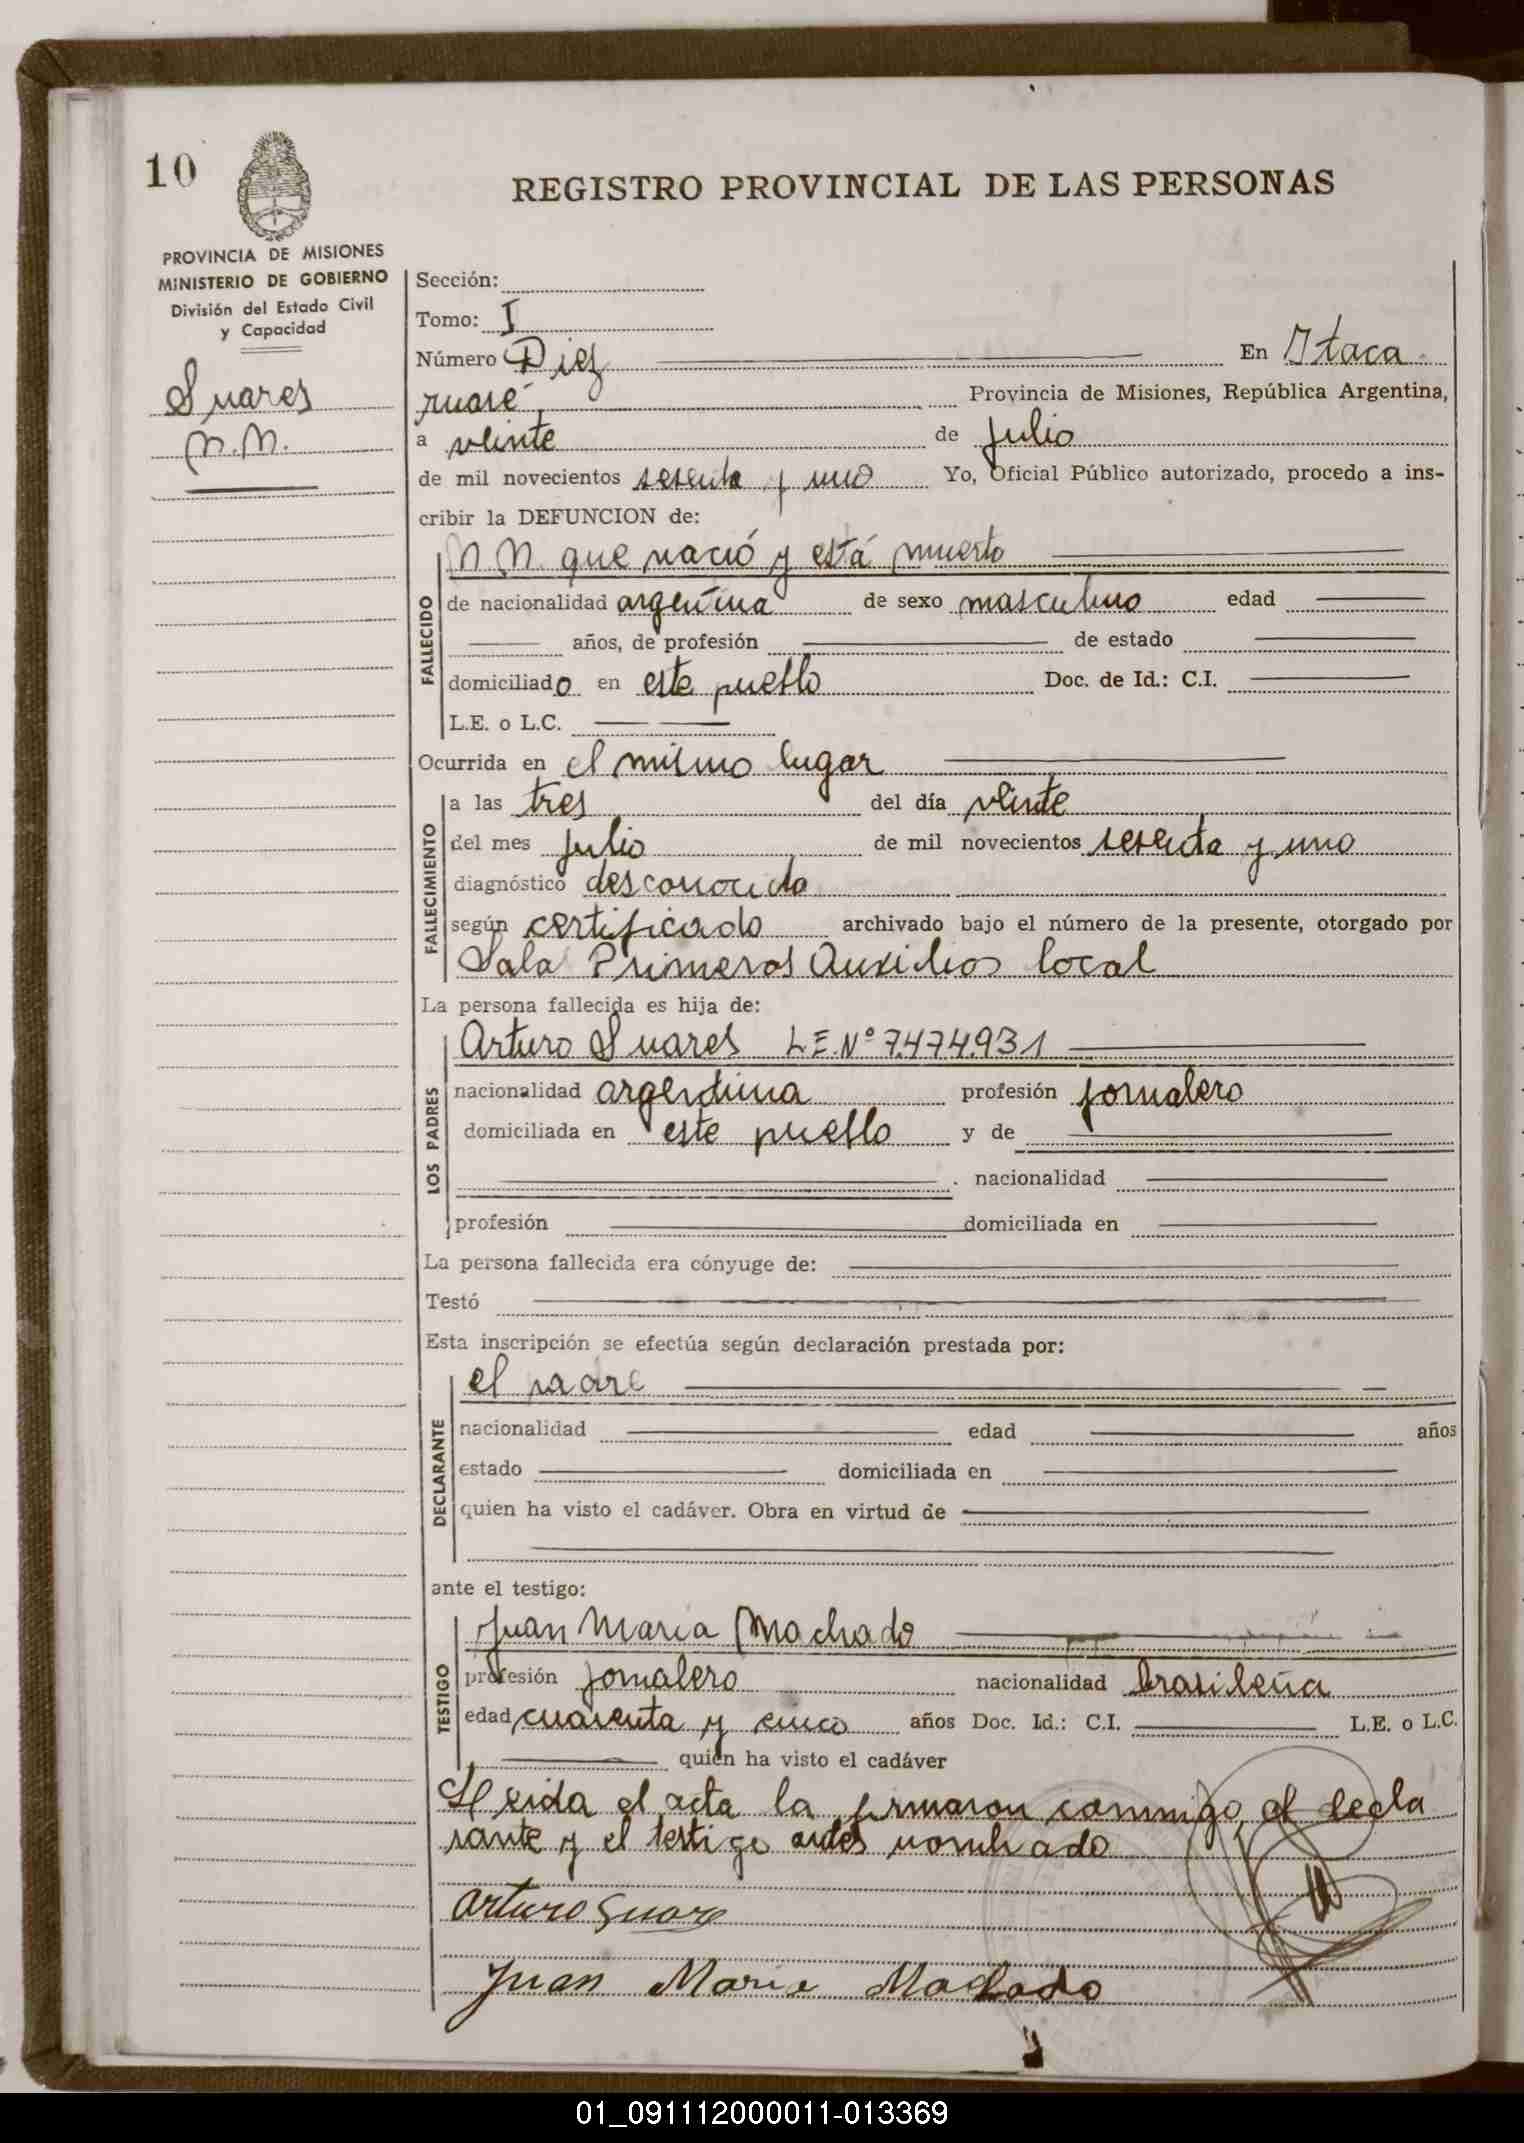 10
REGISTRO PROVINCIAL DE LAS PERSONAS
PROVINCIA DE MISIONES
MINISTERIO DE GOBIERNO
División del Estado Civil
y Capacidad
Suares
N.N.
Sección:
Tomo: I
Número Diez En Itaca
ruaré, Provincia de Misiones, República Argentina,
a veinte de julio
de mil novecientos sesenta y uno Yo, Oficial Público autorizado, procedo a ins-
cribir la DEFUNCION de:
N N. que nació y está muerto
FALLECIDO
de nacionalidad argentina de sexo masculino edad
años, de profesión de estado
domiciliado en este pueblo Doc. de Id.: C.I.
L.E. o L.C.
Ocurrida en el mismo lugar
FALLECIMIENTO
a las tres del día veinte
del mes julio de mil novecientos sesenta y uno
diagnóstico desconocido
según certificado archivado bajo el número de la presente, otorgado por
Sala Primeros Auxilios local
La persona fallecida es hija de:
LOS PADRES
Arturo Suares L.E.Nº 7.474.931
nacionalidad argentina profesión jornalero
domiciliada en este pueblo y de
nacionalidad
profesión domiciliada en
La persona fallecida era cónyuge de:
Testó
Esta inscripción se efectúa según declaración prestada por:
DECLARANTE
el padre
nacionalidad edad años
estado domiciliada en
quien ha visto el cadáver. Obra en virtud de
ante el testigo:
TESTIGO
Juan Maria Machado
profesión jornalero nacionalidad brasileña
edad cuarenta y cinco años Doc. Id.: C.I. L.E. o L.C.
quien ha visto el cadáver
Leida el acta la firmaron conmigo, el decla
rante y el testigo antes nombrado
Arturo Suarez
Juan Maria Machado
01_091112000011-013369